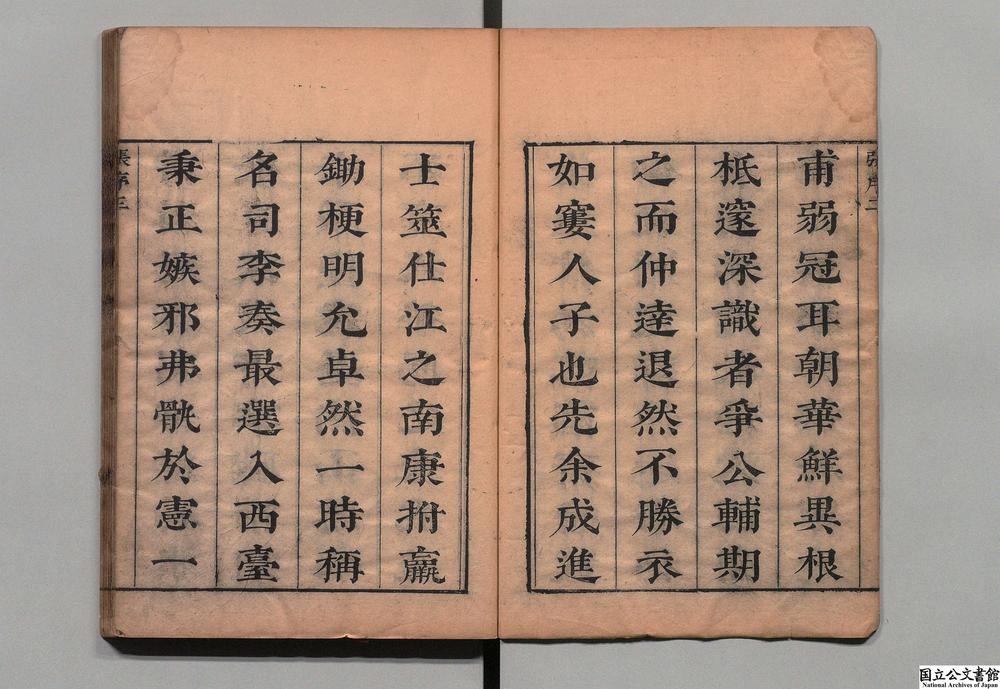 甫弱冠耳朝華鮮異根
柢邃深識者爭公輔期
之而仲逵退然不勝衣
如窶人子也先余成進
士筮仕江之南康拊羸
鋤梗明允卓然一時稱
名司李奏最選入西臺
秉正嫉邪弗骩於憲一
張序三
国立公文書館
National Archives of Japan